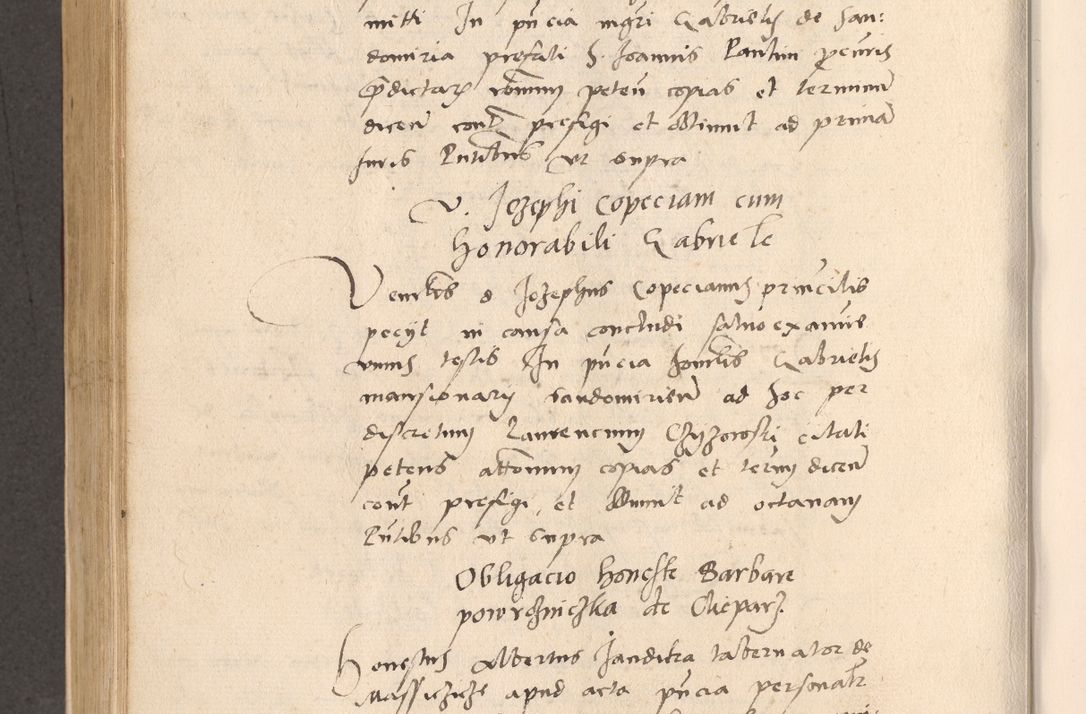 mitti In pñcia mgri Gabrielis de San:
domiria prefati S. Joannis Pantin procuris
predictar. rõnum peten copias et terminũ
dicen cont. prefigi et obtinuit ad primã
Juris Pñtibus ut supra
V. Jozephi Copeciam cum
Honorabili Gabriele
Venerbis d Jozephus Copecianus principlis
pecijt in causa concludi salvo examie
unius testis In pñcia honorbis Gabrielis
mansionarij Sandomirien ad hoc per
discretum Laurencium citati
petens attõnum copias et termi dicen
cont prefigi et obtinuit ad octavam
Pñtibus ut supra
Obligacio honeste Barbare
powrozniczka de Clepar.
Honestus Albertus Janditra tabernator de
apud acta pñcia personalr